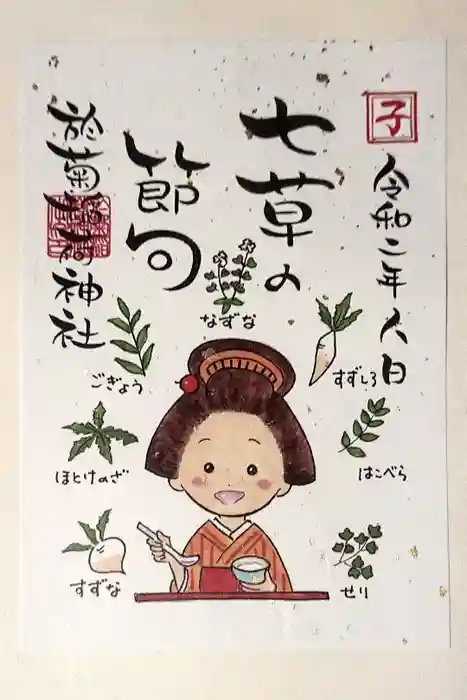 子
令和二年人日
七草の
節句
於菊稲荷神社
なずな
ごぎょう
すずしろ
ほとけのざ
はこべら
すずな
せり